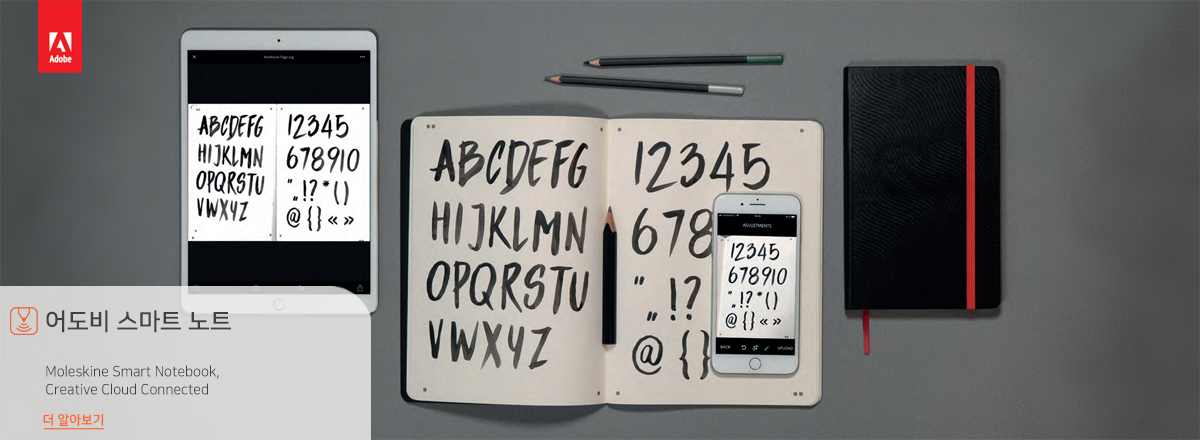 Adobe
Notebook Page.log
ABCDEFG
HIJKLMN
OPQRSTU
VWXYZ
12345
678910
"„!?*()
@{}«»
ABCDEFG
HIJKLMN
OPQRSTU
VWXYZ
12345
678
"„!?
@{}
ADJUSTMENTS
12345
678910
"„!?*()
@{}«»
BACK
UPLOAD
어도비 스마트 노트
Moleskine Smart Notebook,
Creative Cloud Connected
더 알아보기